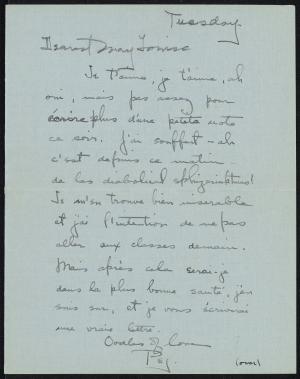 Tuesday
Dearest May Louise
Je t'aime, je t'aime, ah
oui, mais pas assez pour
écrire plus d'une petite note
ce soir. J'ai souffert - ah
c'est depuis ce matin -
de las diabolical
Je m'en trouve bien miserable
et j'ai l'intention de ne pas
aller aux classes demain.
Mais après cela serai-je
dans la plus bonne santé, j'en
suis sur, et je vous écrirai
une vraie lettre.
Oodles of love
(over)